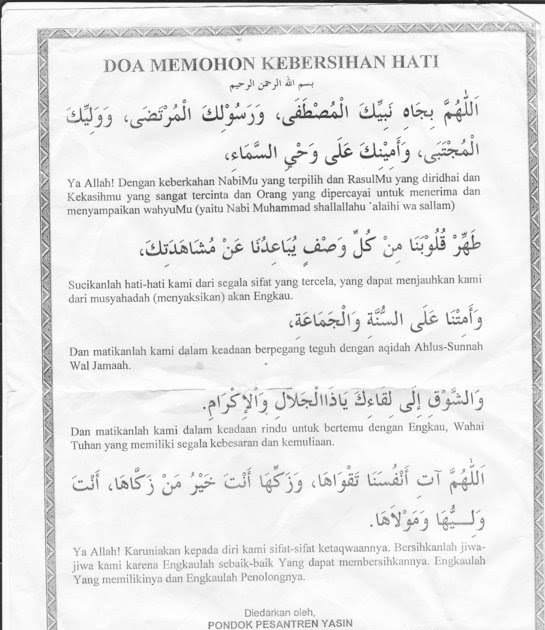 DOA MEMOHON KEBERSIHAN HATI
بسم الله الرحمن الرحيم
اَللّٰهُمَّ بِجَاهِ نَبِيِّكَ الْمُصْطَفَى، وَرَسُوْلِكَ الْمُرْتَضَى، وَوَلِيِّكَ
الْمُجْتَبَى، وَأَمِيْنِكَ عَلَى وَحْيِ السَّمَاءِ،
Ya Allah! Dengan keberkahan NabiMu yang terpilih dan RasulMu yang diridhai dan
Kekasihmu yang sangat tercinta dan Orang yang dipercayai untuk menerima dan
menyampaikan wahyuMu (yaitu Nabi Muhammad shallallahu `alaihi wa sallam)
طَهِّرْ قُلُوْبَنَا مِنْ كُلِّ وَصْفٍ يُبَاعِدُنَا عَنْ مُشَاهَدَتِكَ،
Sucikanlah hati-hati kami dari segala sifat yang tercela, yang dapat menjauhkan kami
dari musyahadah (menyaksikan) akan Engkau.
وَأَمِتْنَا عَلَى السُّنَّةِ وَالْجَمَاعَةِ،
Dan matikanlah kami dalam keadaan berpegang teguh dengan aqidah Ahlus-Sunnah
Wal Jamaah.
وَالشَّوْقِ إِلَى لِقَاءِكَ يَاذَاالْجَلاَلِ وَالْإِكْرَامِ.
Dan matikanlah kami dalam keadaan rindu untuk bertemu dengan Engkau, Wahai
Tuhan yang memiliki segala kebesaran dan kemuliaan.
اَللّٰهُمَّ آتِ أَنْفُسَنَا تَقْوَاهَا، وَزَكِّهَا أَنْتَ خَيْرُ مَنْ زَكَّاهَا، أَنْتَ
وَلِـــيُّهَا وَمَوْلاَهَا.
Ya Allah! Karuniakan kepada diri kami sifat-sifat ketaqwaannya. Bersihkanlah jiwa-
jiwa kami karena Engkaulah sebaik-baik Yang dapat membersihkannya. Engkaulah
Yang memilikinya dan Engkaulah Penolongnya.
Diedarkan oleh,
PONDOK PESANTREN YASIN